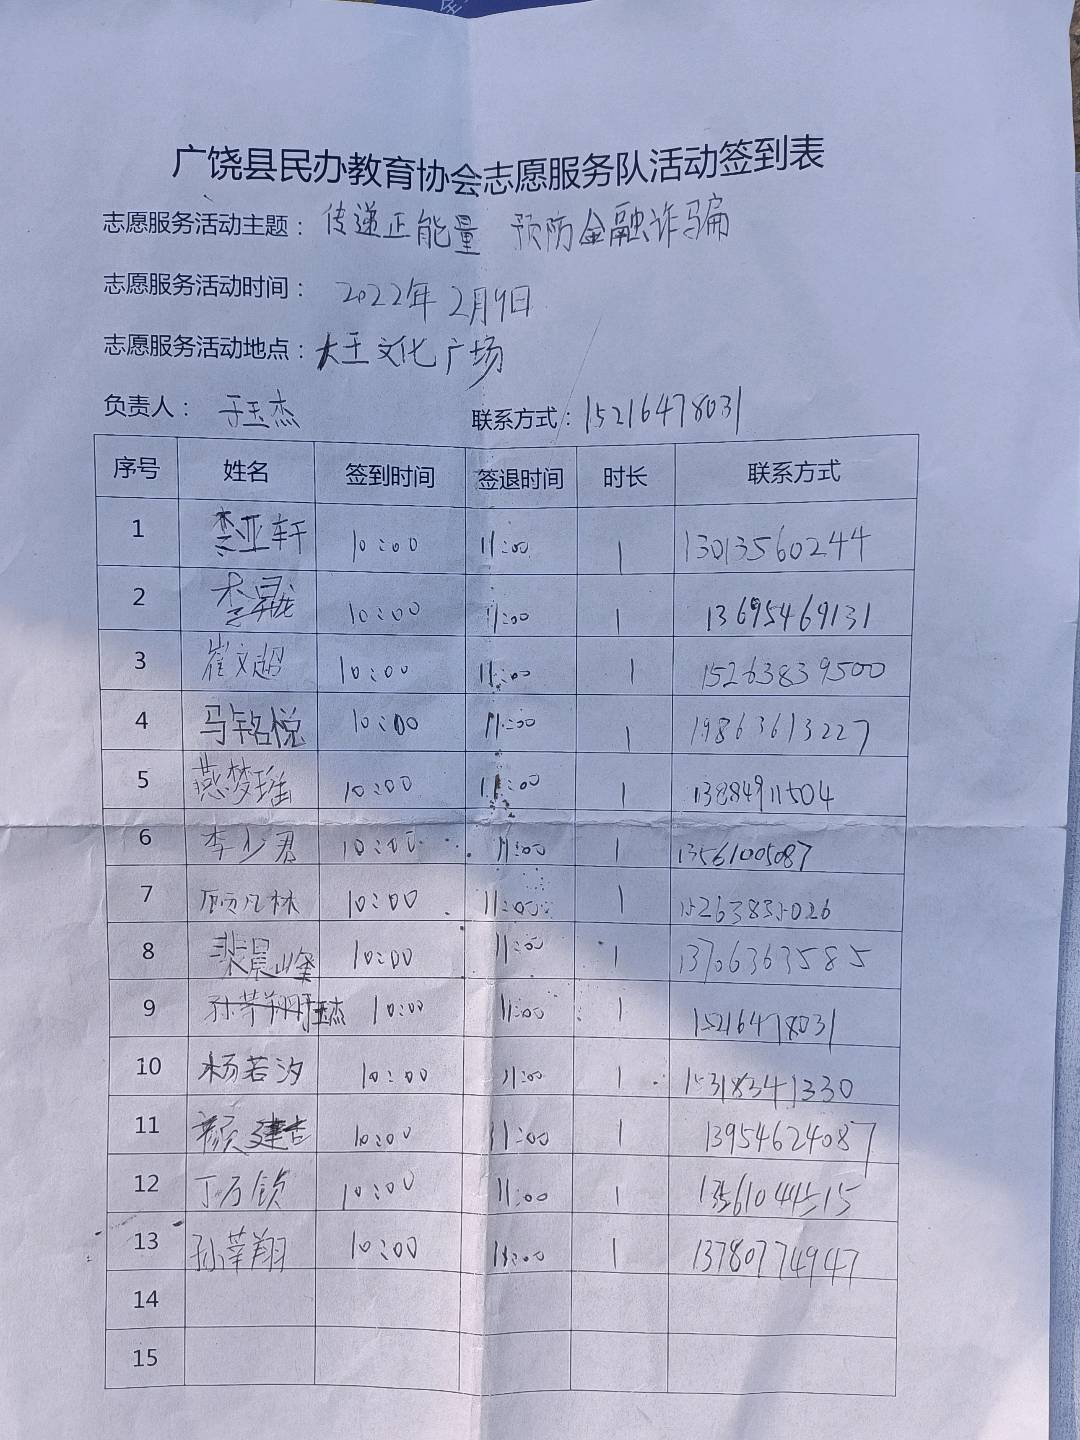 广饶县民办教育协会志愿服务队活动签到表
志愿服务活动主题：传递正能量 预防金融诈骗
志愿服务活动时间：2022年2月9日
志愿服务活动地点：大王文化广场
负责人：于玉杰 联系方式：15216478031
序号 姓名 签到时间 签退时间 时长 联系方式
1 李亚轩 10:00 11:00 1 13013560244
2 李昊龙 10:00 11:00 1 13695469131
3 崔文超 10:00 11:00 1 15263839500
4 马铭悦 10:00 11:00 1 19863613227
5 燕梦瑶 10:00 11:00 1 13884911504
6 李少君 10:00 11:00 1 13561005087
7 顾凡林 10:00 11:00 1
8 裴晨峰 10:00 11:00 1 13706363585
9 于玉杰 10:00 11:00 1 15216478031
10 杨若汐 10:00 11:00 1 15318341330
11 颜建 10:00 11:00 1 13954624087
12 丁万钦 10:00 11:00 1
13 孙莘翔 10:00 11:00 1 13780774947
14
15